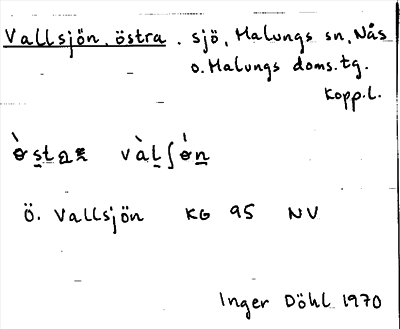 Vallsjön, östra. sjö, Malungs sn, Nås
o. Malungs doms.tg.
Kopp.l.
vàlʃón
Ö. Vallsjön KG 95 NV
Inger Döhl 1970